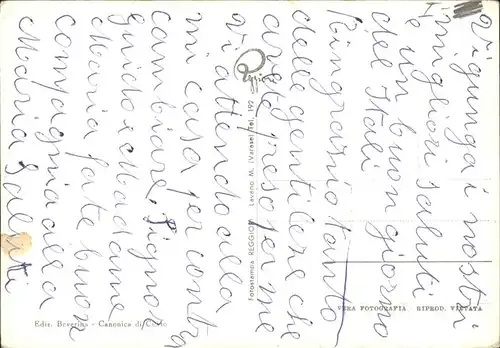 Vi giunga i nostri
migliori saluti
e un buon giorno
del Italia
Ringrazio tanto
delle gentileze che
avete preso per me
Vi attendo alla
mi casa per contra
cambiare, Signor
Guido e Madame
Maria fate buon
compagnia alla
Maria Saluti
Fotostampa REGGIORI - Laveno M. (Varese) Tel. 192
VERA FOTOGRAFIA RIPROD. VIETATA
Ediz. Beverina - Canonica di